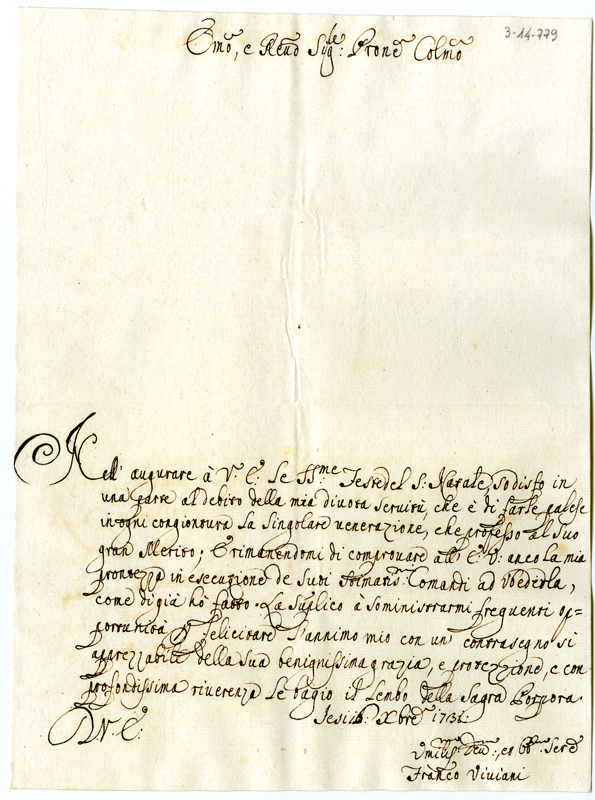 3-14-779
Emo, e Reud Sigle: Prone Colmo
Nell' augurare à V. E. Le SSme Feste del S. Natale, sodisfo in
una parte al debito della mia divota servitù, che è di farle palese
in ogni congiontura la singolare venerazione, che professo al suo
gran Merito; E rimanendomi di comprovare all' E. V. anco la mia
prontezza in esecuzione de Suoi Stimatismi Comandi ad Vbedirla,
come di già hò fatto. La Suplico à Soministrarmi frequenti op=
portunità p felicitare l'animo mio con un' contrasegno sì
apprezzabile della Sua benignissima grazia, e protezzione, e con
profondissima riverenza Le bagio il Lembo della Sagra Porpora
Jesi Xbre 1731.
D V. E.
Vmilmo Devmo, et Obmo Sere
Franco Viviani